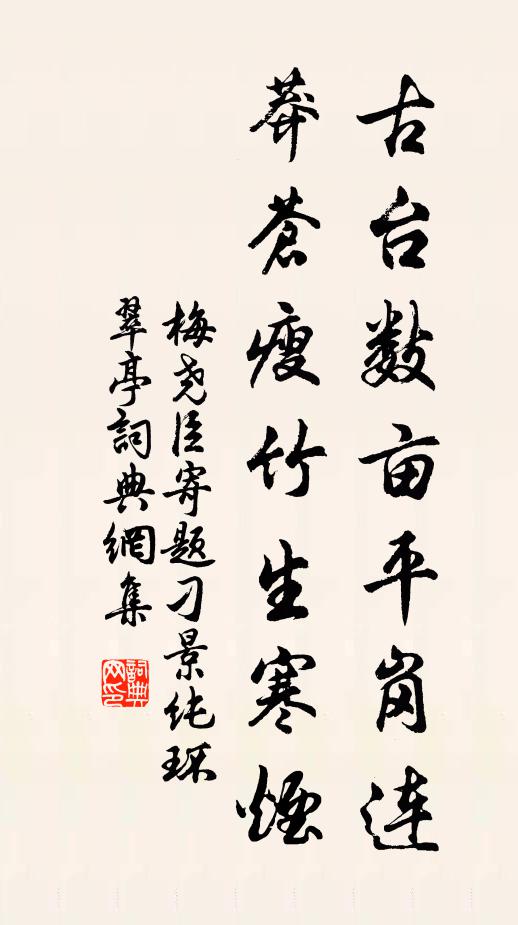 古台数亩平岗连
莽苍瘦竹生寒煙
梅尧臣寄题刁景纯环
翠亭詞典網集
詞典
网印